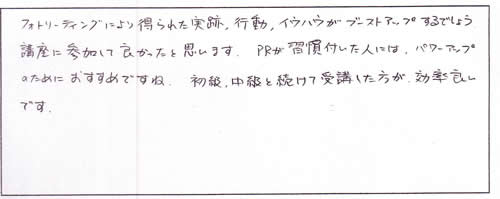 フォトリーディングにより得られた実跡，行動，イウハウがブーストアップするでしょう
講座に参加して良かったと思います． PRが習慣付いた人には，パワーアップ
のためにおすすめですね． 初級，中級と続けて受講した方が，効率良い
です．